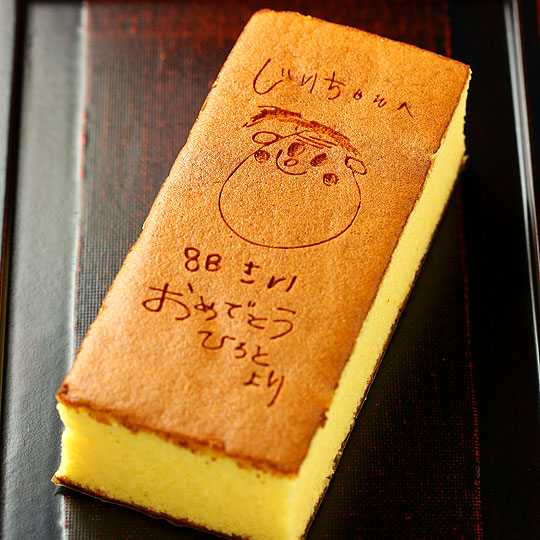 じいちゃんへ
88さい
おめでとう
ひろと
より